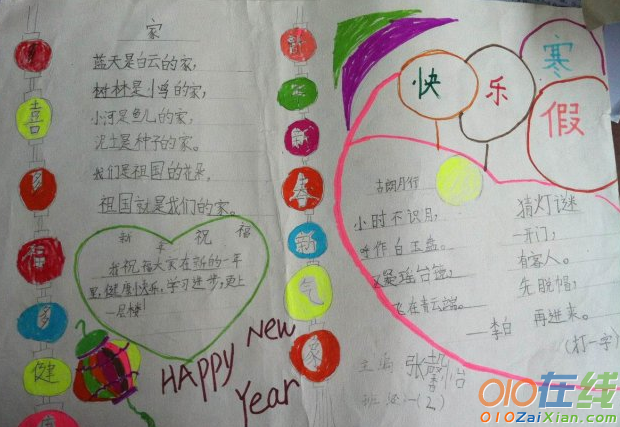 多
喜
多
福
多
健
康
家
蓝天是白云的家,
树林是小鸟的家,
小河是鱼儿的家,
泥土是种子的家。
我们是祖国的花朵,
祖国就是我们的家。
新年祝福
我祝福大家在新的一年
里,健康快乐,学习进步,更上
一层楼!
HAPPY New
Year
新
年
新
春
新
气
象
快乐
寒
假
古朗月行
小时不识月,
呼作白玉盘。
又疑瑶台镜,
飞在青云端。
——李白
猜灯谜
一开门,
有客人。
先脱帽,
再进来。
(打一字)
主编 张 怡
班级 一(2)
010在线
010ZaiXian.com